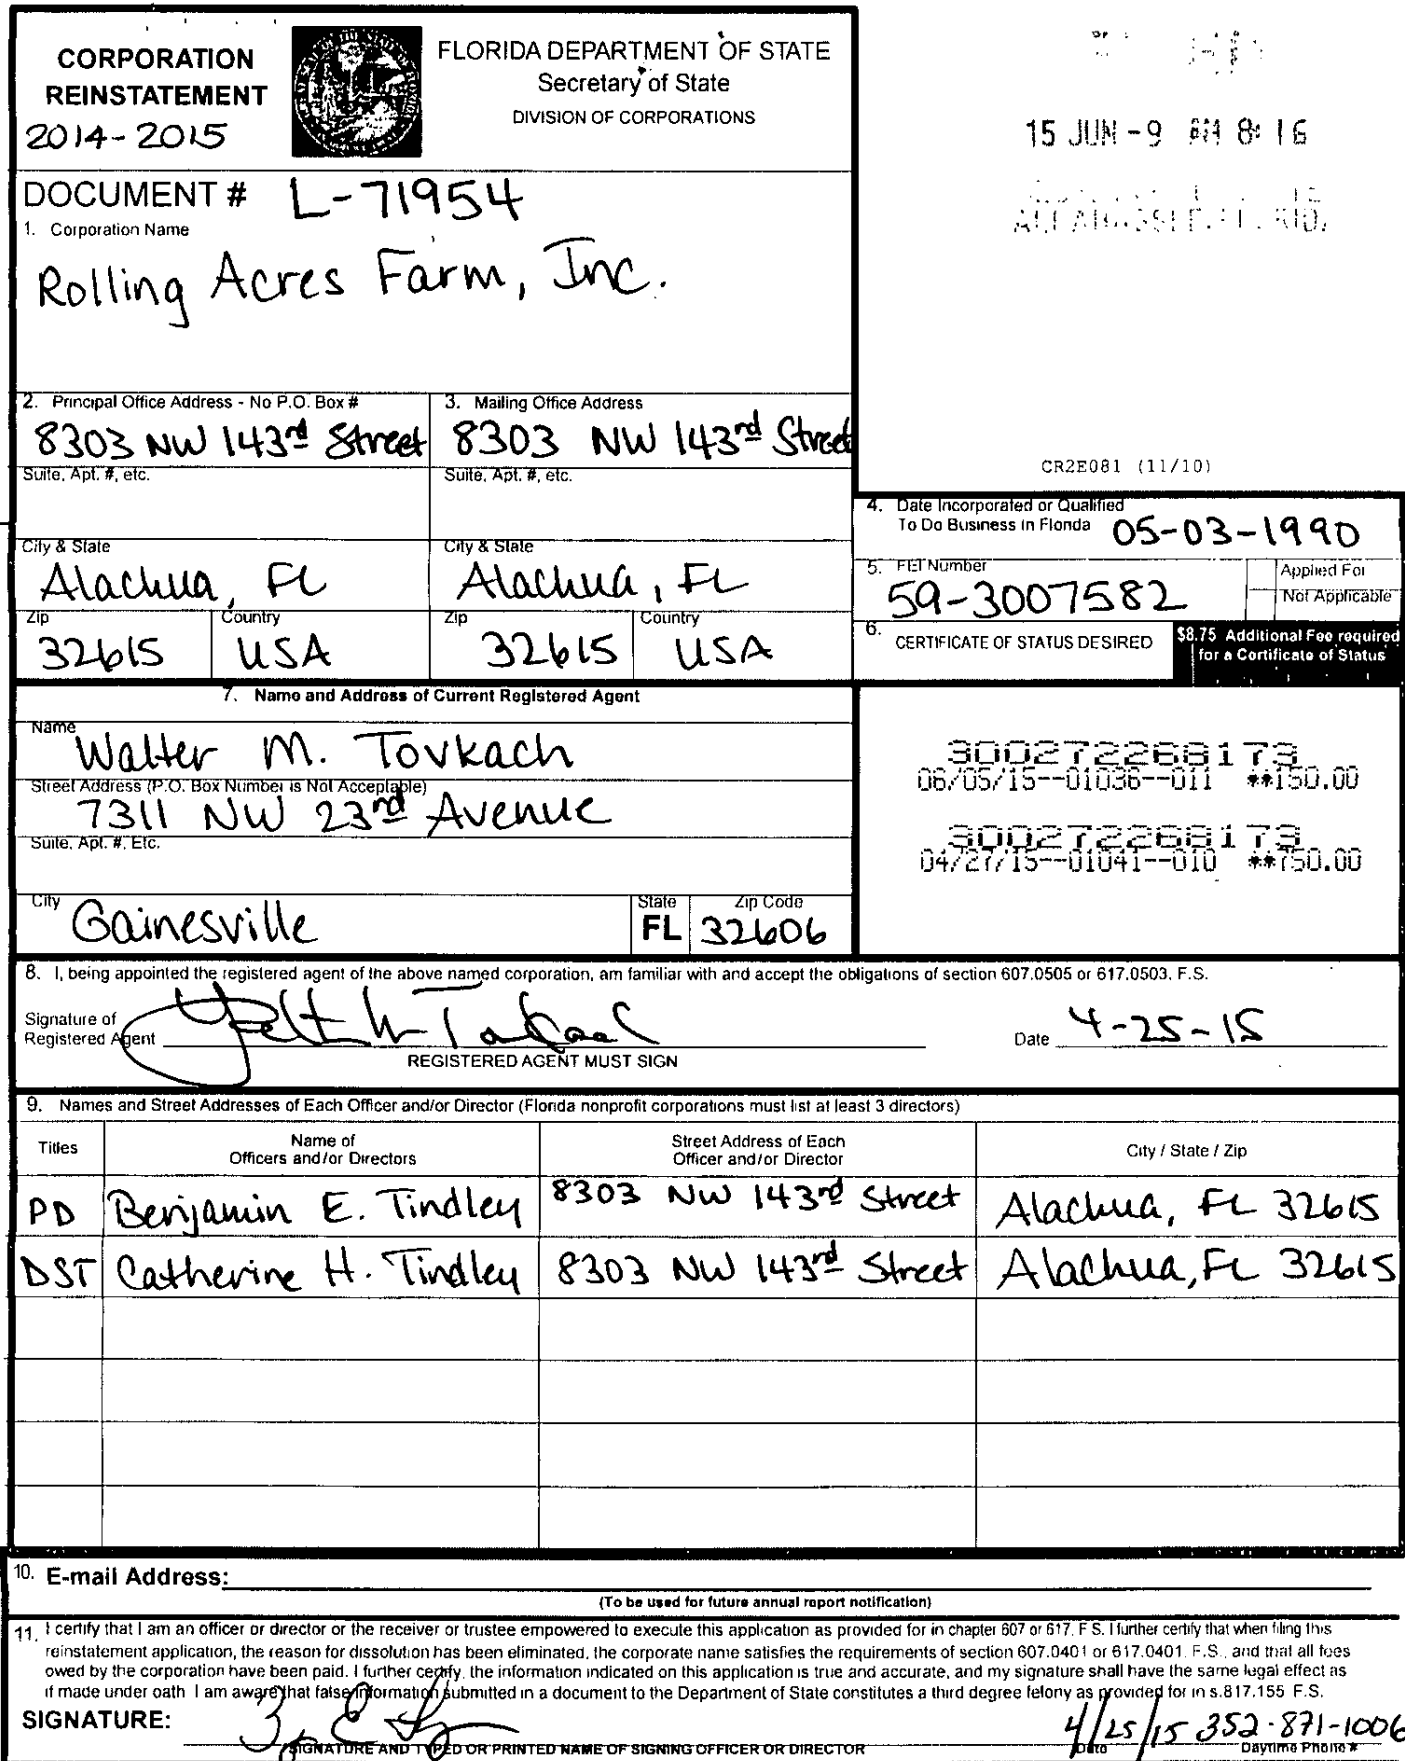 CORPORATION
REINSTATEMENT
2014-2015
FLORIDA DEPARTMENT OF STATE
Secretary of State
DIVISION OF CORPORATIONS
15 JUN -9 AM 8:16
DOCUMENT # L-71954
1. Corporation Name
Rolling Acres Farm, Inc.
2. Principal Office Address - No P.O. Box #
8303 NW 143rd Street
3. Mailing Office Address
8303 NW 143rd Street
Suite, Apt. #, etc.
Suite, Apt. #, etc.
CR2E081 (11/10)
City & State
Alachua, FL
City & State
Alachua, FL
Zip
32615
Country
USA
Zip
32615
Country
USA
4. Date Incorporated or Qualified
To Do Business in Florida 05-03-1990
5. FEI Number
59-3007582
Applied For
Not Applicable
6. CERTIFICATE OF STATUS DESIRED
$8.75 Additional Fee required
for a Certificate of Status
7. Name and Address of Current Registered Agent
Name
Walter M. Tovkach
Street Address (P.O. Box Number is Not Acceptable)
7311 NW 23rd Avenue
Suite, Apt. #, Etc.
City
Gainesville
State
FL
Zip Code
32606
300272268173
06/05/15--01036--011 **150.00
300272268173
04/27/15--01041--010 **750.00
8. I, being appointed the registered agent of the above named corporation, am familiar with and accept the obligations of section 607.0505 or 617.0503, F.S.
Signature of
Registered Agent
REGISTERED AGENT MUST SIGN
Date 4-25-15
9. Names and Street Addresses of Each Officer and/or Director (Florida nonprofit corporations must list at least 3 directors)
Titles
Name of
Officers and/or Directors
Street Address of Each
Officer and/or Director
City / State / Zip
PD Benjamin E. Tindley 8303 NW 143rd Street Alachua, FL 32615
DST Catherine H. Tindley 8303 NW 143rd Street Alachua, FL 32615
10. E-mail Address:
(To be used for future annual report notification)
11. I certify that I am an officer or director or the receiver or trustee empowered to execute this application as provided for in chapter 607 or 617, F.S. I further certify that when filing this
reinstatement application, the reason for dissolution has been eliminated, the corporate name satisfies the requirements of section 607.0401 or 617.0401, F.S., and that all fees
owed by the corporation have been paid. I further certify, the information indicated on this application is true and accurate, and my signature shall have the same legal effect as
if made under oath. I am aware that false information submitted in a document to the Department of State constitutes a third degree felony as provided for in s.817.155 F.S.
SIGNATURE:
4/25/15 352-871-1006
SIGNATURE AND TYPED OR PRINTED NAME OF SIGNING OFFICER OR DIRECTOR
Date
Daytime Phone #